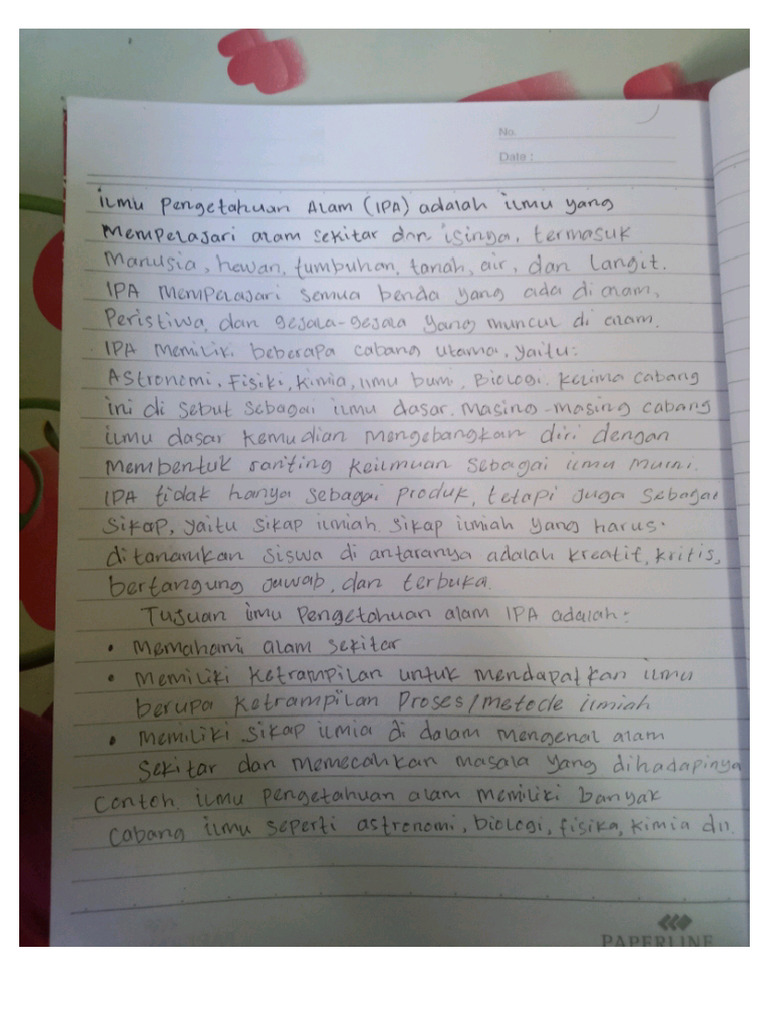 No.
Date :
ilmu Pengetahuan Alam (IPA) adalah ilmu yang
Mempelajari alam sekitar dan isinya, termasuk
Manusia, hewan, tumbuhan, tanah, air, dan langit.
IPA Mempelajari semua benda yang ada di alam,
Peristiwa, dan gejala-gejala yang muncul di alam.
IPA Memiliki beberapa cabang utama, yaitu:
Astronomi, Fisiki, Kimia, ilmu bumi, Biologi. Kelima cabang
ini di sebut sebagai ilmu dasar. Masing-masing cabang
ilmu dasar kemudian mengebangkan diri dengan
Membentuk ranting keilmuan sebagai ilmu murni.
IPA tidak hanya sebagai produk, tetapi juga sebagai
Sikap, yaitu sikap ilmiah. Sikap ilmiah yang harus
ditanamkan siswa di antaranya adalah kreatif, kritis,
bertangung jawab, dan terbuka.
Tujuan ilmu Pengetahuan alam IPA adalah:
• Memahami alam sekitar
• Memiliki ketrampilan untuk mendapatkan ilmu
berupa ketrampilan Proses/metode ilmiah
• Memiliki sikap ilmia di dalam mengenal alam
Sekitar dan memecahkan masala yang dihadapinya
Contoh. ilmu pengetahuan alam memiliki banyak
cabang ilmu seperti astronomi, biologi, fisika, kimia dll.
PAPERLINE